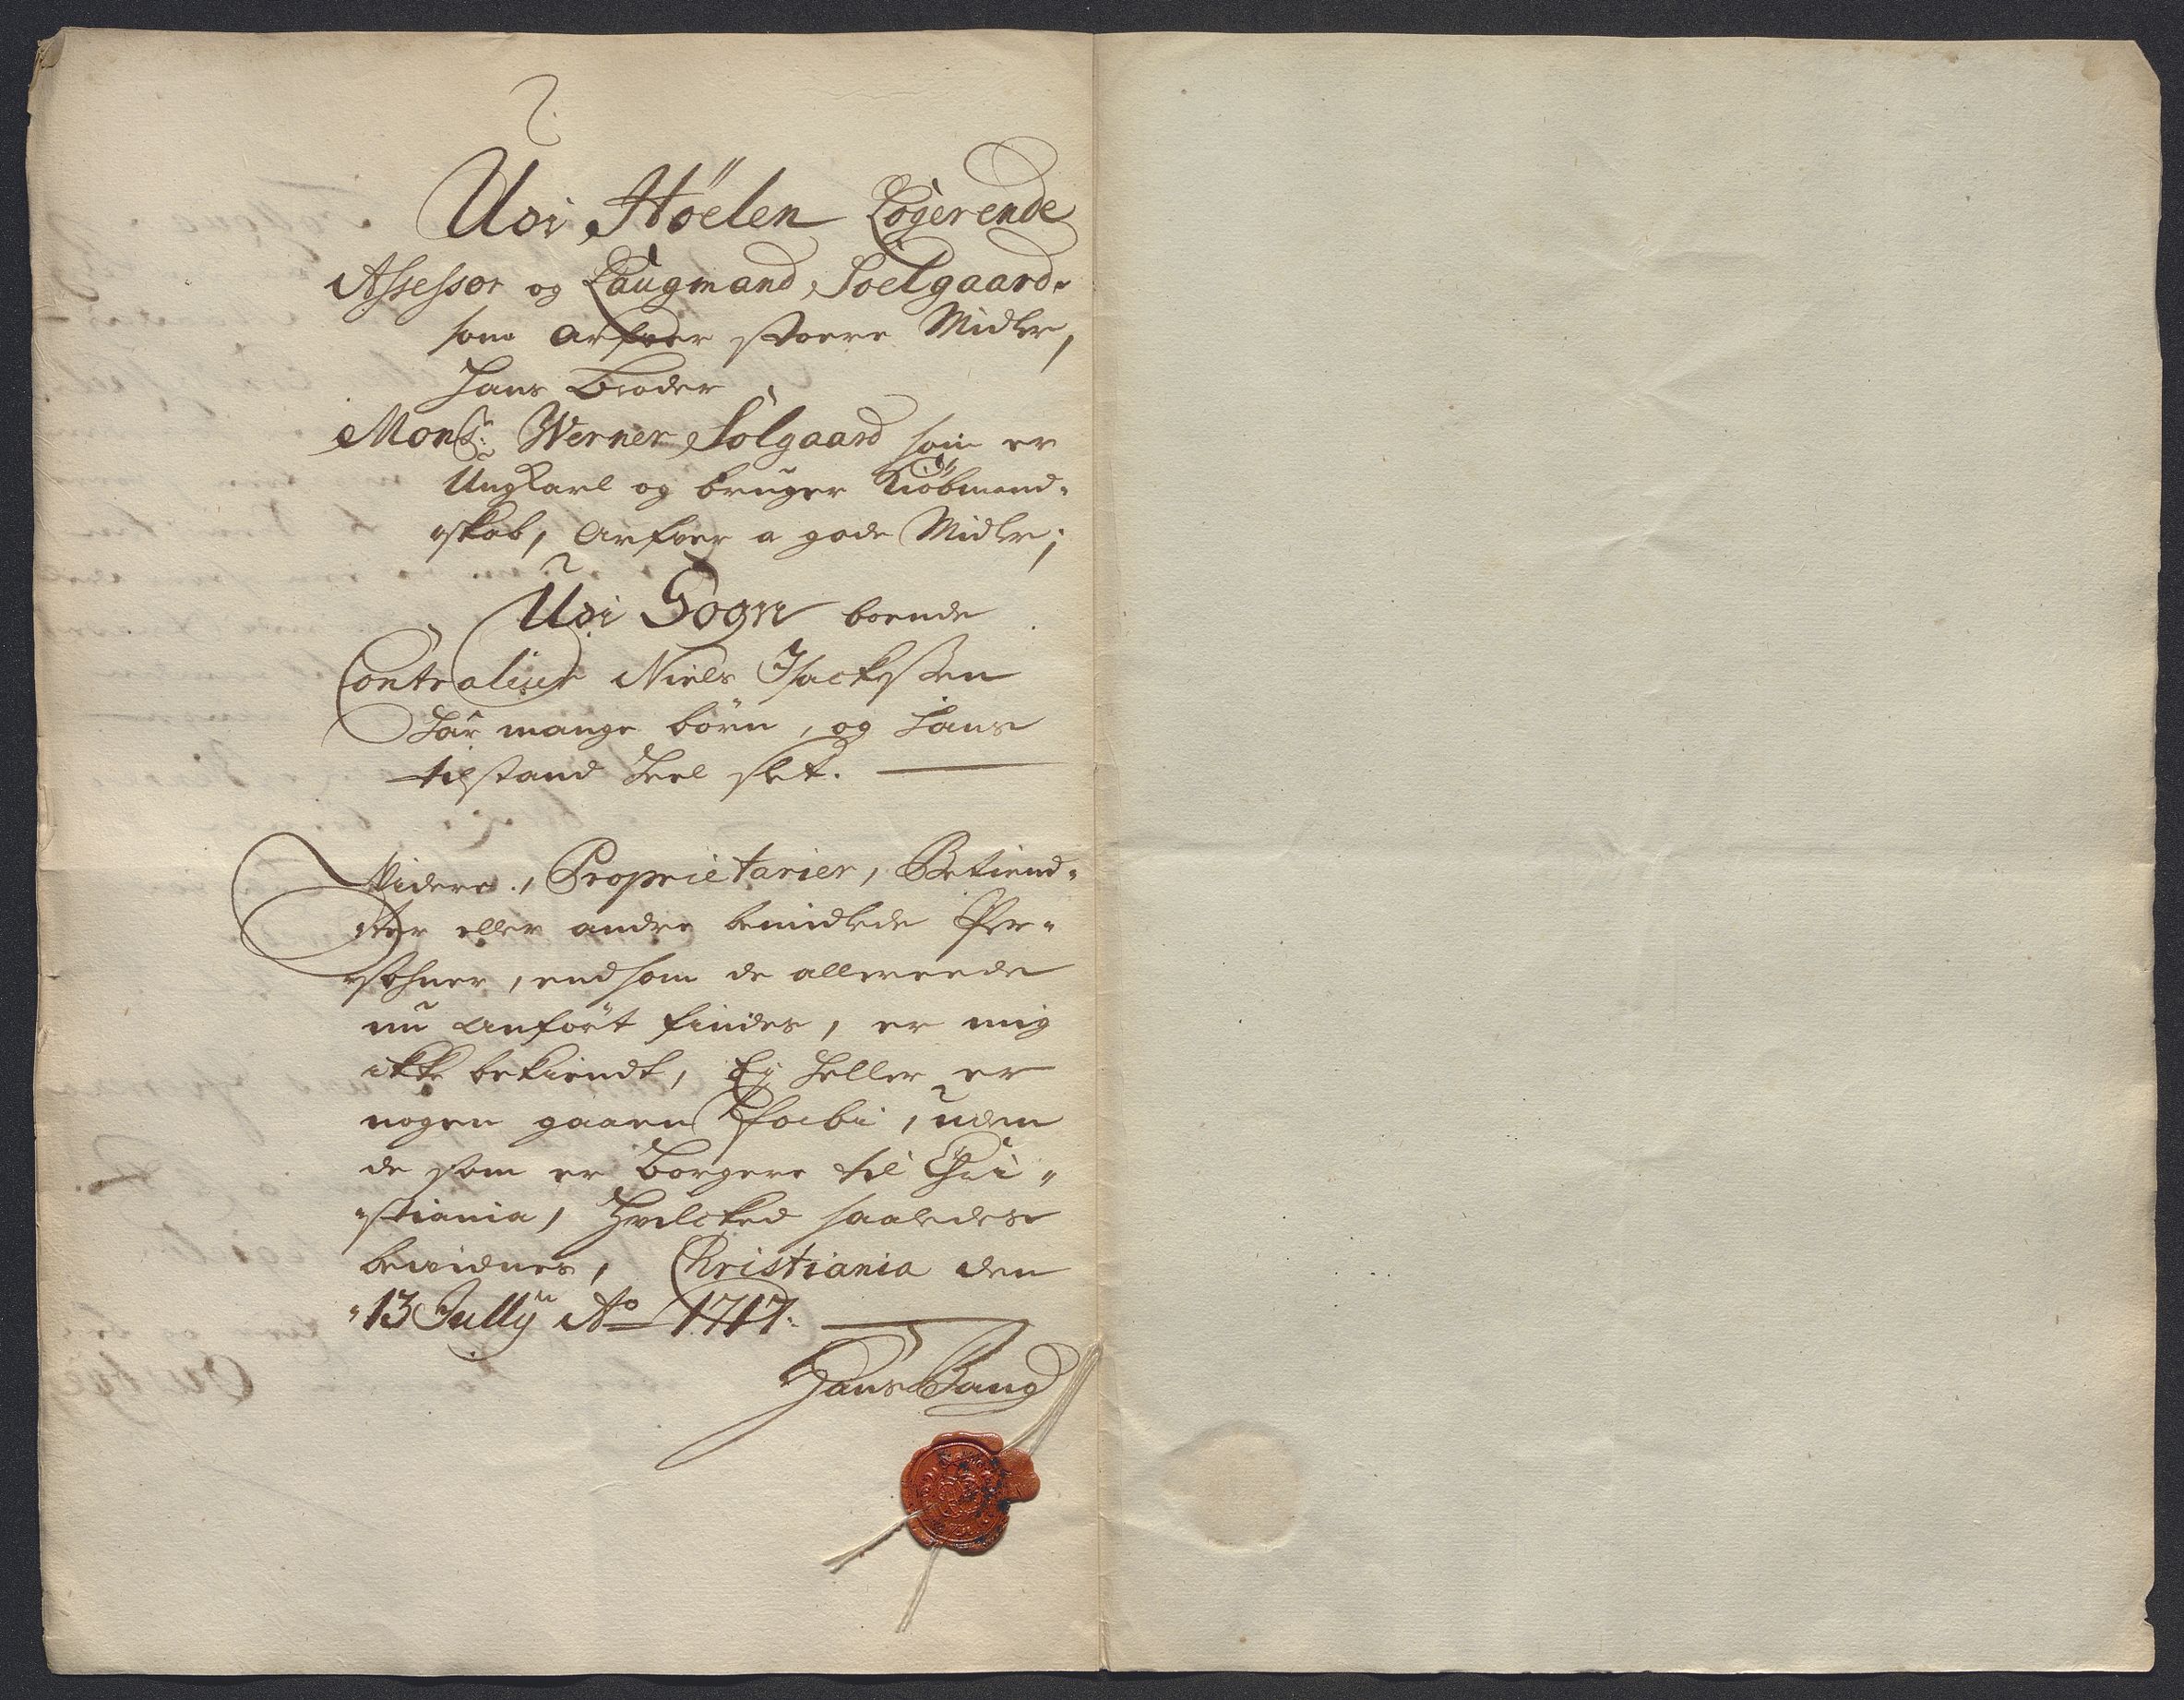 Udi Höelen Logerende
Assessor og Laugmand Soelgaard
som Arfver stoere Midler,
Hans Broder
Monsr: Werner Solgaard som er
Ungkarl og bruger Kiöbmand-
skab, Arfver a gode Midler;
Udi Sogn boende
Contralieur Niels Isacksen
Har mange börn, og Hans
tilstand Heel slet.
Videre, Proprietarier, Betiend-
ter eller andre bemidlede Per-
sohner, end som de allereede
nu anfört findes, er mig
ikke bekiendt, Ej heller er
nogen gaaen forbi, uden
de som er Borgere til Chri-
stiania, Hvilcked saaledes
bevidnes, Christiania den
13 Jullÿ Ao 1717.
Hans Bang